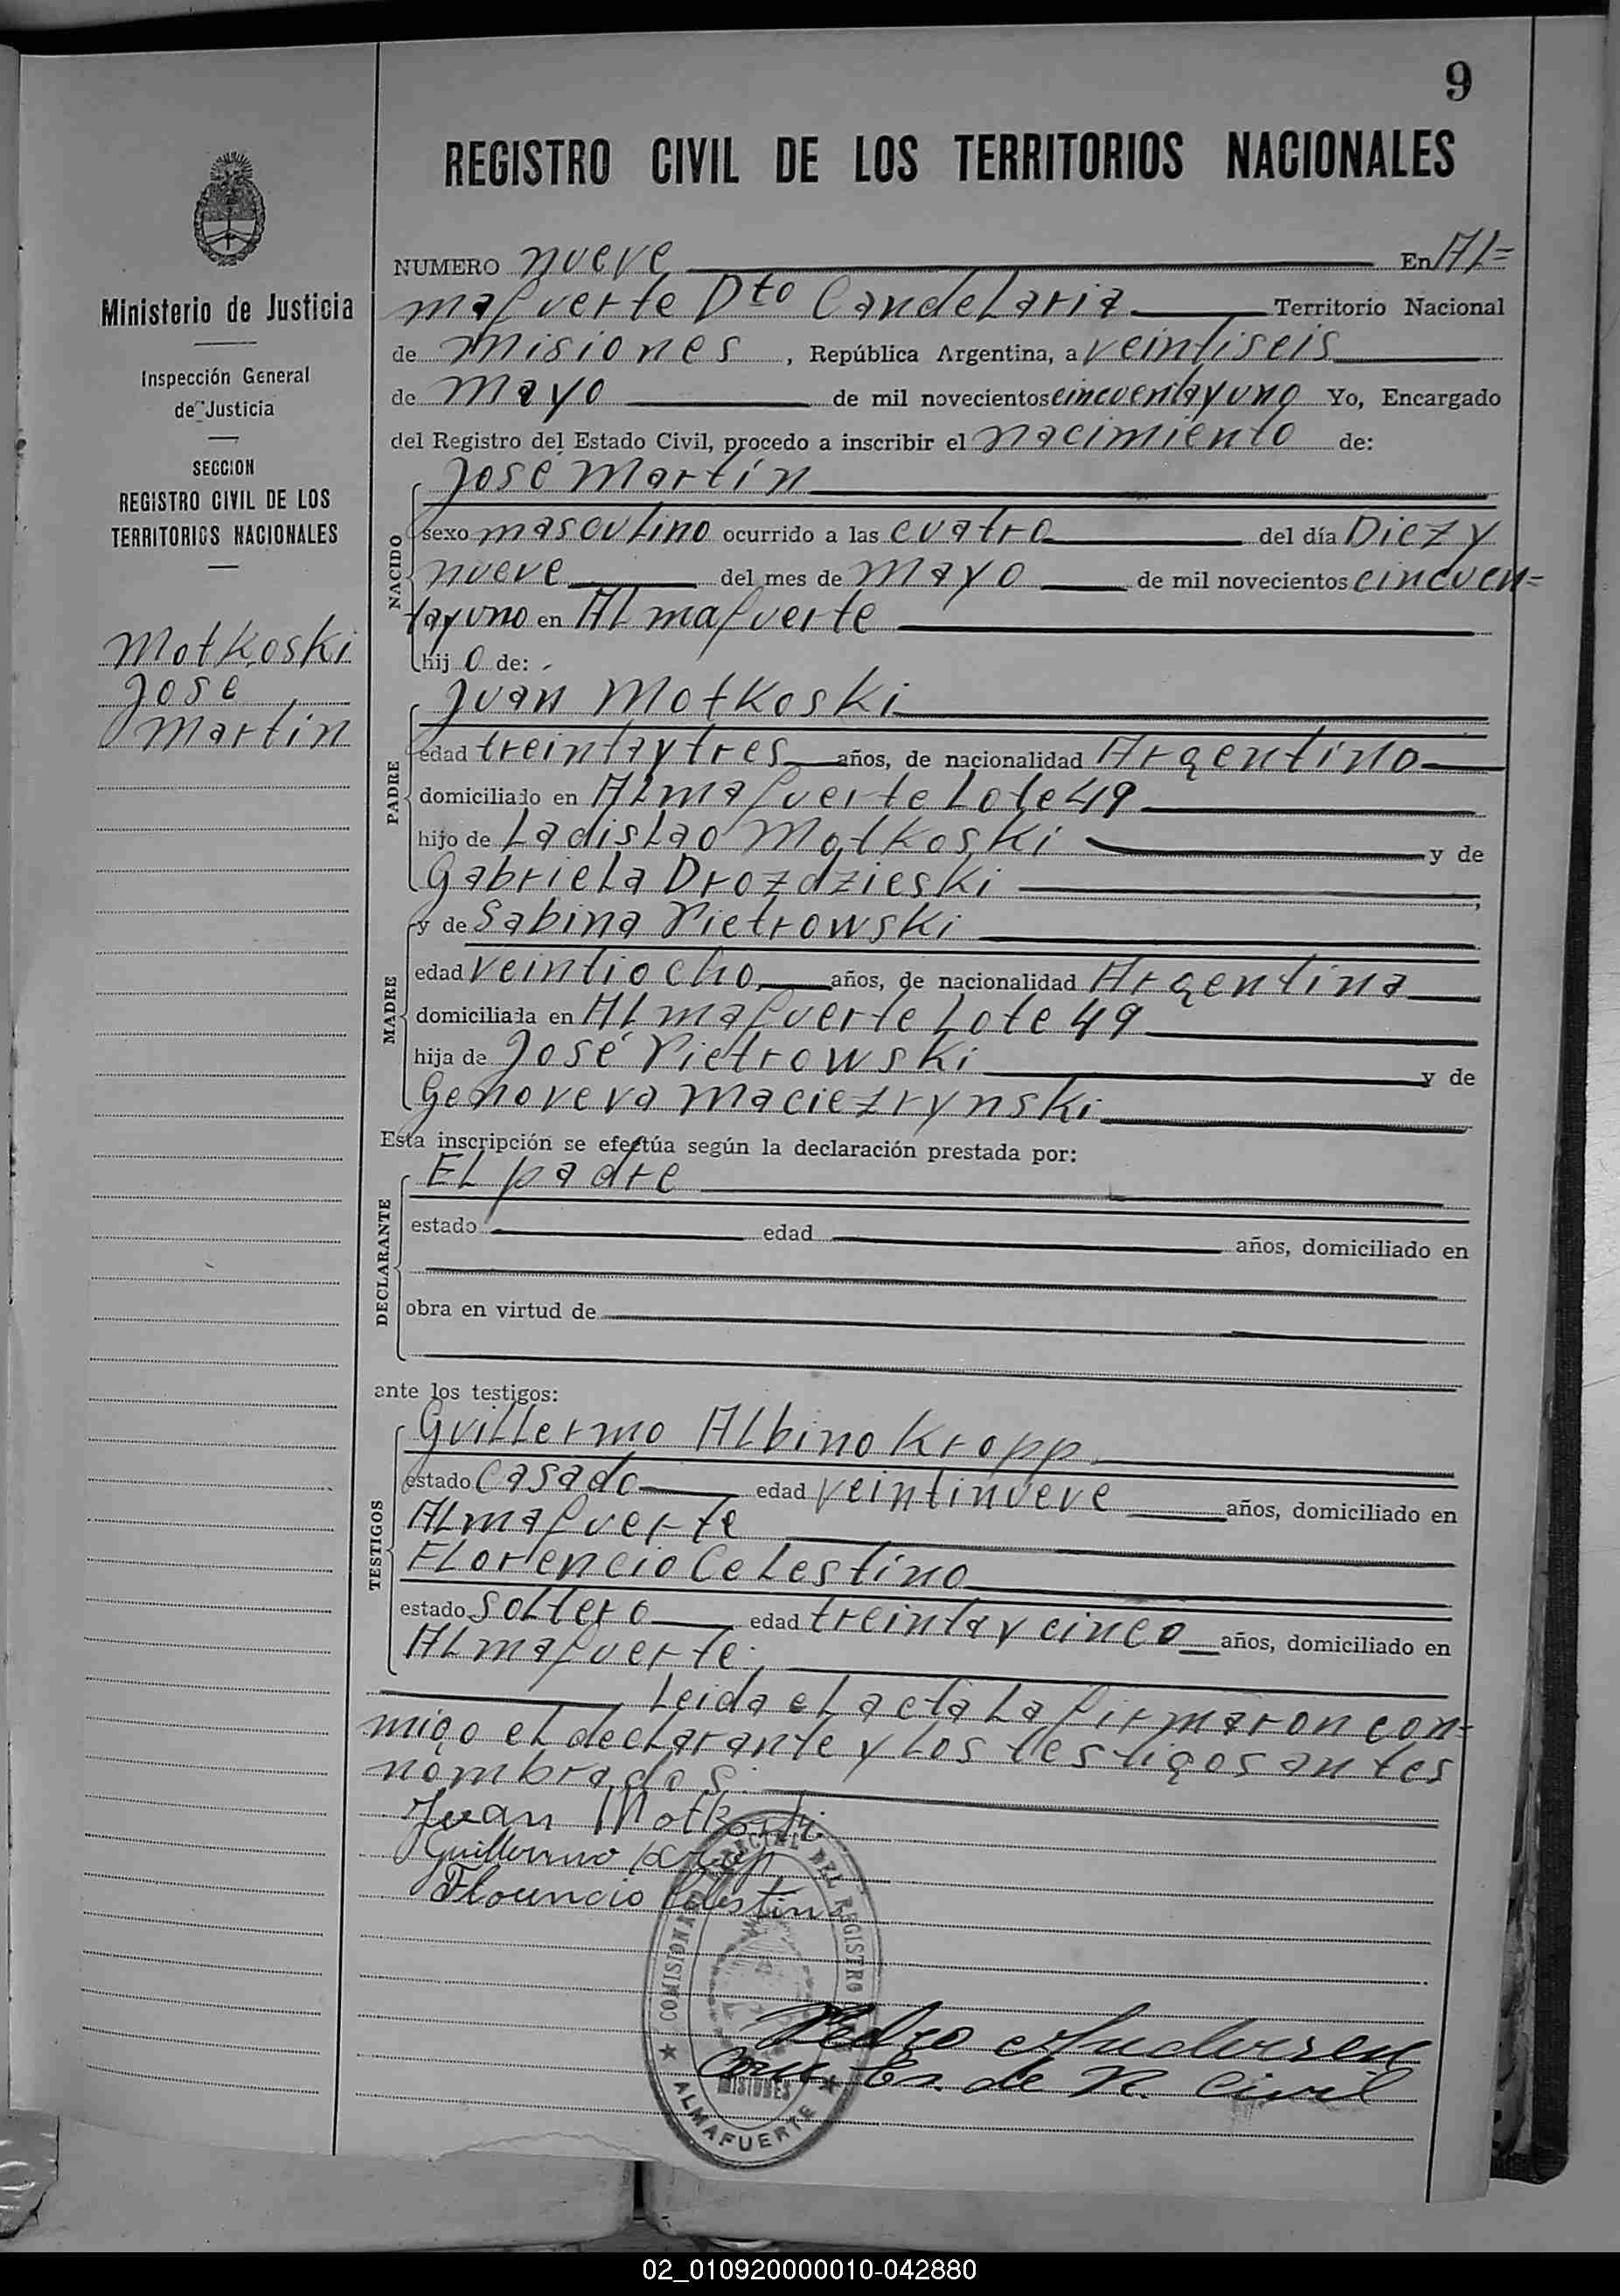 9
REGISTRO CIVIL DE LOS TERRITORIOS NACIONALES
Ministerio de Justicia
Inspección General
de Justicia
SECCION
REGISTRO CIVIL DE LOS
TERRITORIOS NACIONALES
Motkoski
Jose
Martin
NUMERO nueve En Al=
mafuerte Dto Candelaria Territorio Nacional
de misiones, República Argentina, a veintiseis
de mayo de mil novecientos cincuentayuno Yo, Encargado
del Registro del Estado Civil, procedo a inscribir el nacimiento de:
NACIDO
José Martín
sexo masculino ocurrido a las cuatro del día Diez y
nueve del mes de mayo de mil novecientos cincuen=
tayuno en Almafuerte
hijo de:
PADRE
Juan Motkoski
edad treintaytres años, de nacionalidad Argentino
domiciliado en Almafuerte Lote 49
hijo de Ladislao Motkoski y de
Gabriela Drozdzieski,
MADRE
y de Sabina Pietrowski
edad veintiocho años, de nacionalidad Argentina
domiciliada en Almafuerte Lote 49
hija de José Pietrowski y de
Genoveva Maciezrynski
Esta inscripción se efectúa según la declaración prestada por:
DECLARANTE
El padre
estado edad años, domiciliado en
obra en virtud de
ante los testigos:
TESTIGOS
Guillermo Albino Kropp
estado casado edad veintinueve años, domiciliado en
Almafuerte
Florencio Celestino
estado soltero edad treintaycinco años, domiciliado en
Almafuerte.
Leida el acta la firmaron con=
migo el declarante y los testigos antes
nombrados.
Juan Motkoski
Guillermo Kropp
Florencio Celestino
DEL REGISTRO
MISIONES
ALMAFUERTE
Pedro Andersen
de R. Civil
02_010920000010-042880